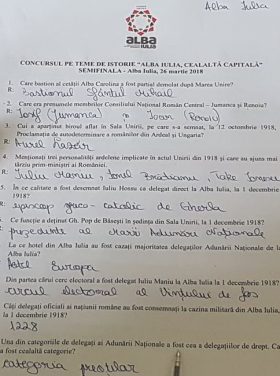 Alba Iulia
ALBA
IULIA
CONCURSUL PE TEME DE ISTORIE “ALBA IULIA, CEALALTĂ CAPITALĂ”
SEMIFINALA - Alba Iulia, 26 martie 2018
1. Care bastion al cetății Alba Carolina a fost parțial demolat după Marea Unire?
R: Bastionul Sfântul Mihail
2. Care era prenumele membrilor Consiliului Național Român Central – Jumanca și Renoiu?
R: Iosif (Jumanca) și Ioan (Renoiu)
3. Cui a aparținut biroul aflat în Sala Unirii, pe care s-a semnat, la 12 octombrie 1918,
Proclamația de autodeterminare a românilor din Ardeal și Ungaria?
R: Aurel Lazăr
4. Menționați trei personalități ardelene implicate în actul Unirii din 1918 și care au ajuns mai
târziu prim-miniștri ai României.
R: Iuliu Maniu, Ionel Brătianu, Take Ionescu
5. În ce calitate a fost desemnat Iuliu Hossu ca delegat direct la Alba Iulia, la 1 decembrie
1918?
R: episcop greco-catolic de Gherla
Ce funcție a deținut Gh. Pop de Băsești în ședința din Sala Unirii, la 1 decembrie 1918?
Președinte al Marii Adunări Naționale
La ce hotel din Alba Iulia au fost cazați majoritatea delegaților Adunării Naționale de la
Alba Iulia?
Hotel Europa
Din partea cărui cerc electoral a fost delegat Iuliu Maniu la Alba Iulia la 1 decembrie 1918?
Cercul electoral al Vințului de Jos
Câți delegați oficiali ai națiunii române au fost consemnați la cazina militară din Alba Iulia,
la 1 decembrie 1918?
1228
Una din categoriile de delegați ai Adunării Naționale a fost cea a delegațiilor de drept. Care
a fost cealaltă categorie?
categoria preoților